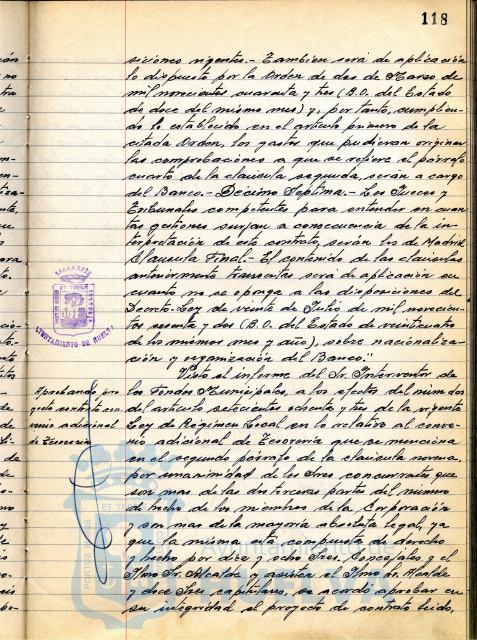 118
siciones vigentes.- Tambien será de aplicación
lo dispuesto por la Orden de dos de Marzo de
mil novecientos cuarenta y tres (B.O. del Estado
de doce del mismo mes) y, por tanto, cumplien-
do lo establecido en el artículo primero de la
citada Orden, los gastos que pudieran originar
las comprobaciones a que se refiere el párrafo
cuarto de la clausula segunda, serán a cargo
del Banco.- Décimo Septima.- Los Jueces y
Tribunales competentes para entender en cuan-
tas gestiones surjan a consecuencia de la in-
terpretación de este contrato, serán los de Madrid.
Clausula Final.- El contenido de las clausulas
anteriormente transcritas será de aplicación en
cuanto no se oponga a las disposiciones del
Decreto-Ley de veinte de Julio de mil novecien-
tos sesenta y dos (B.O. del Estado de veinticuatro
de los mismos mes y año), sobre nacionaliza-
ción y organización del Banco."
AYUNTAMIENTO DE HUELVA
Visto el informe del Sr. Interventor de
los Fondos Municipales, a los efectos del num. dos
del artículo setecientos ochenta y tres de la vigente
Ley de Régimen Local en lo relativo al conve-
nio adicional de Tesorería que se menciona
en el segundo párrafo de la clausula novena,
por unanimidad de los Sres concurrentes que
son mas de las dos terceras partes del número
de hecho de los miembros de la Corporación
y son mas de la mayoría absoluta legal, ya
que la misma está compuesta de derecho
y hecho por diez y ocho Sres. Concejales y el
Iltmo Sr. Alcalde y asisten el Iltmo Sr. Alcalde
y doce Sres capitulares, se acordó aprobar en
su integridad el proyecto de contrato leido,
Aprobando pro
yecto contrato con-
venio adicional
de Tesorería
Ayuntamiento